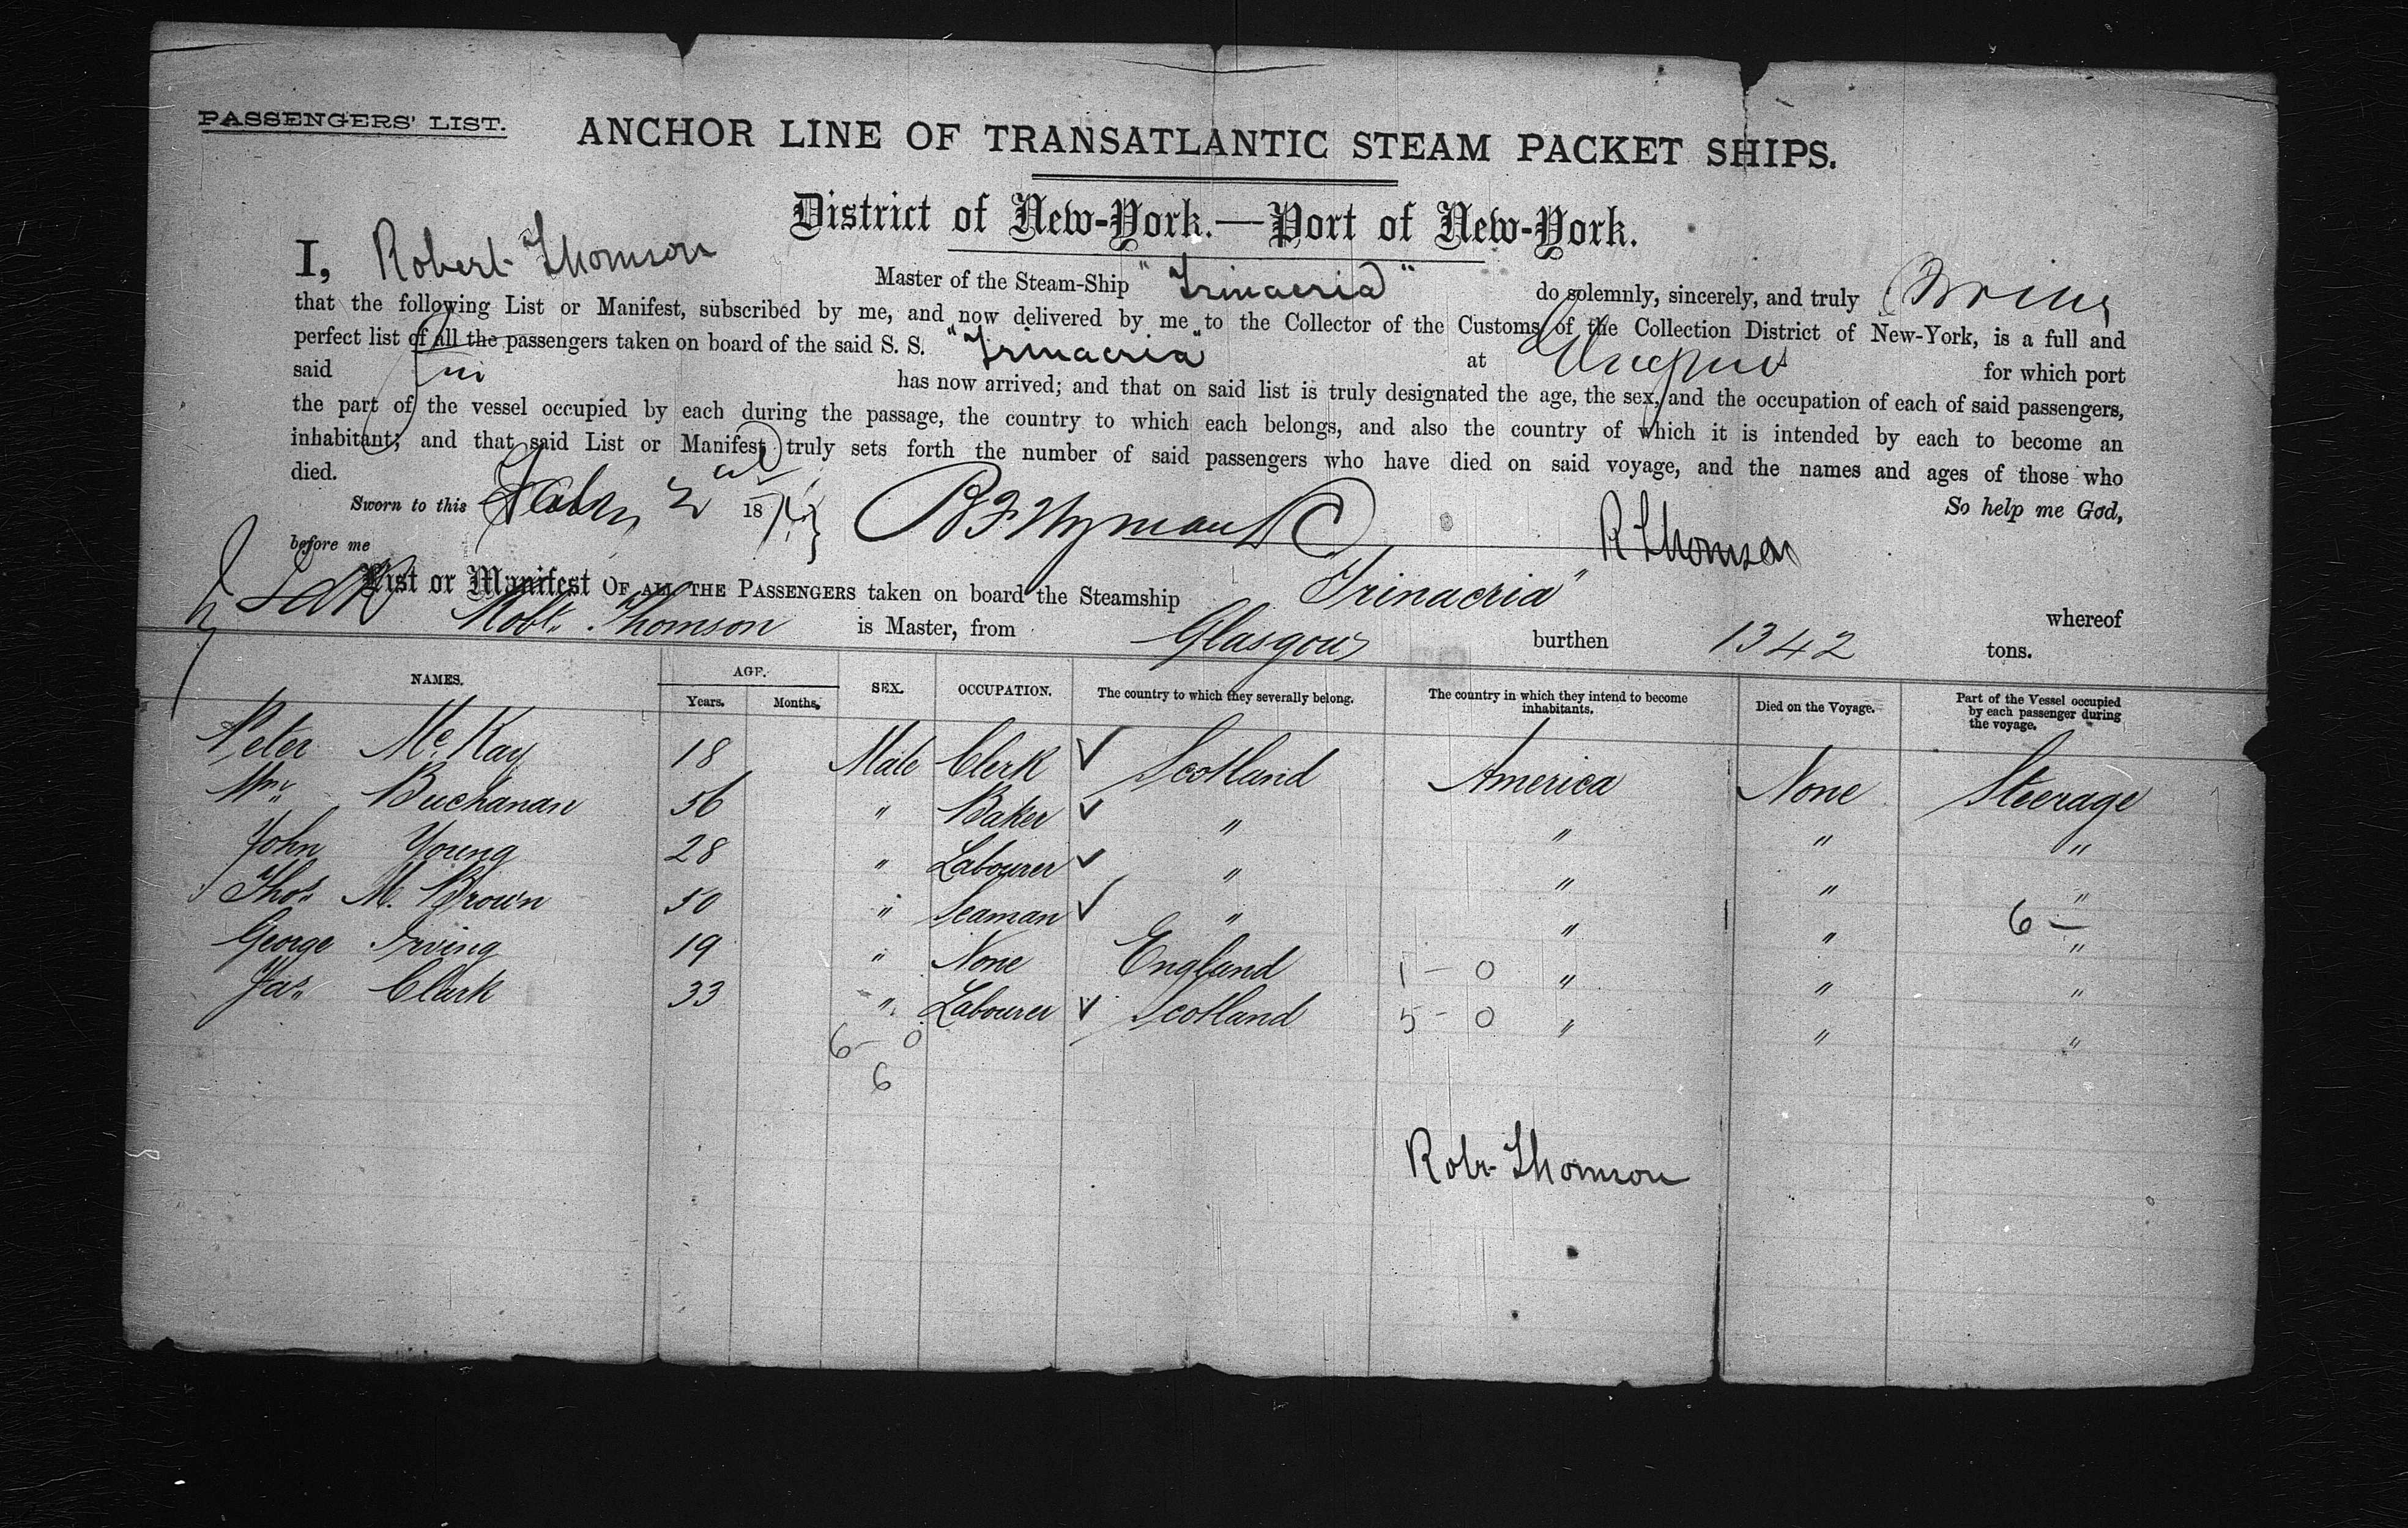 PASSENGERS' LIST.
ANCHOR LINE OF TRANSATLANTIC STEAM PACKET SHIPS.
District of New-York.—Port of New-York.
I, Robert Thomson Master of the Steam-Ship "Trinacria" do solemnly, sincerely, and truly
that the following List or Manifest, subscribed by me, and now delivered by me to the Collector of the Customs of the Collection District of New-York, is a full and
perfect list of all the passengers taken on board of the said S. S. "Trinacria" at Glasgow for which port
said has now arrived; and that on said list is truly designated the age, the sex, and the occupation of each of said passengers,
the part of the vessel occupied by each during the passage, the country to which each belongs, and also the country of which it is intended by each to become an
inhabitant; and that said List or Manifest truly sets forth the number of said passengers who have died on said voyage, and the names and ages of those who
died. So help me God,
Sworn to this Feby 2 18
before me R Thomson
List or Manifest OF ALL THE PASSENGERS taken on board the Steamship "Trinacria" whereof
Robt. Thomson is Master, from Glasgow burthen 1342 tons.
NAMES. AGE. Years. Months. SEX. OCCUPATION. The country to which they severally belong. The country in which they intend to become inhabitants. Died on the Voyage. Part of the Vessel occupied by each passenger during the voyage.
Peter McKay 18 Male Clerk ✓ Scotland America None Steerage
Wm. Buchanan 56 " Baker ✓ " " " "
John Young 28 " Labourer ✓ " " " "
Thos. M. Brown 50 " Seaman ✓ " " " 6 — "
George Irving 19 " None England 1 - 0 " " "
Jas. Clark 33 " Labourer ✓ Scotland 5 - 0 " " "
6 - 0
6
Robt Thomson